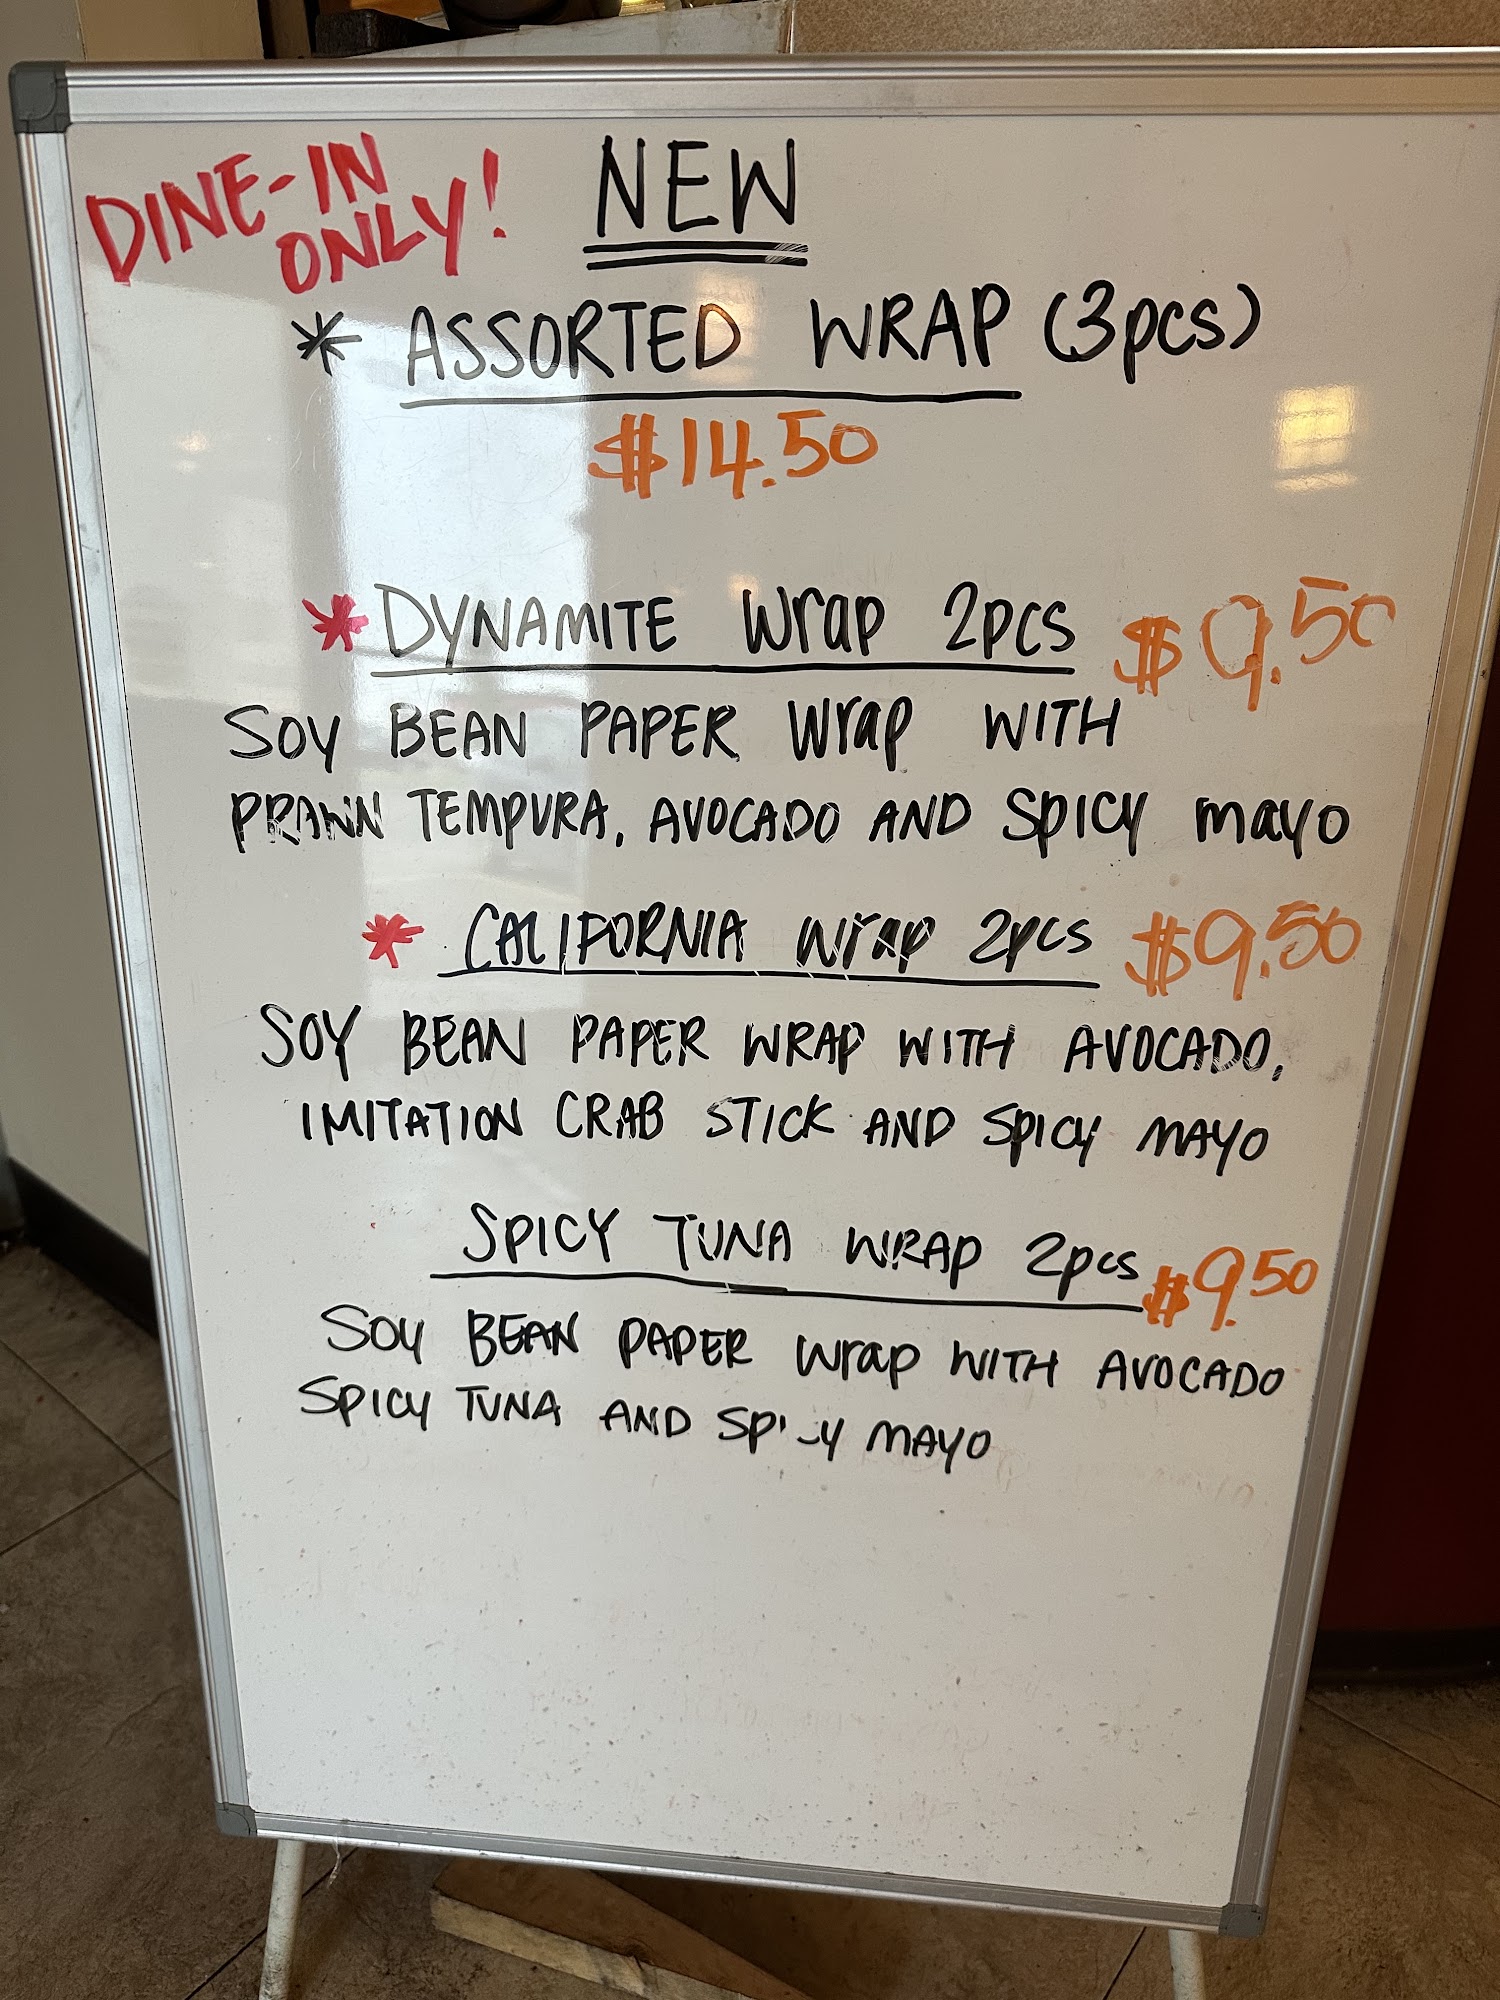 DINE-IN ONLY!
NEW
* ASSORTED WRAP (3pcs)
$14.50
* DYNAMITE wrap 2pcs $9.50
SOY BEAN PAPER wrap WITH
PRAWN TEMPURA, AVOCADO AND SPICY mayo
* CALIFORNIA wrap 2pcs $9.50
SOY BEAN PAPER WRAP WITH AVOCADO,
IMITATION CRAB STICK AND SPICY MAYO
SPICY TUNA WRAP 2pcs $9.50
SOY BEAN PAPER wrap WITH AVOCADO
SPICY TUNA AND SPICY MAYO